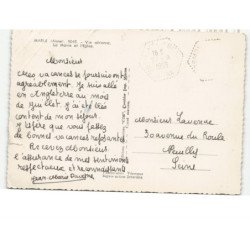 MARLE (Aisne)
Vue aérienne
La Mairie et l'Église
Monsieur
mes vacances se poursuivent
agréablement. Je suis allé
en Angleterre au mois
de Juillet. J'ai été très
content de mon séjour.
J'espère que vous passez
de bonnes vacances reposantes.
Recevez Monsieur
l'assurance de mes sentiments
respectueux et reconnaissants
Jean-Marie
Monsieur Lavenne
30 avenue du Roule
Neuilly
Seine